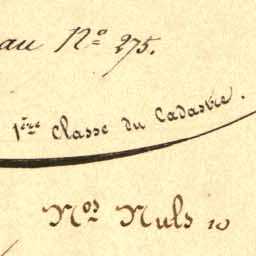 au Nº 275.
1ère Classe du Cadastre.
Nos Nuls 10